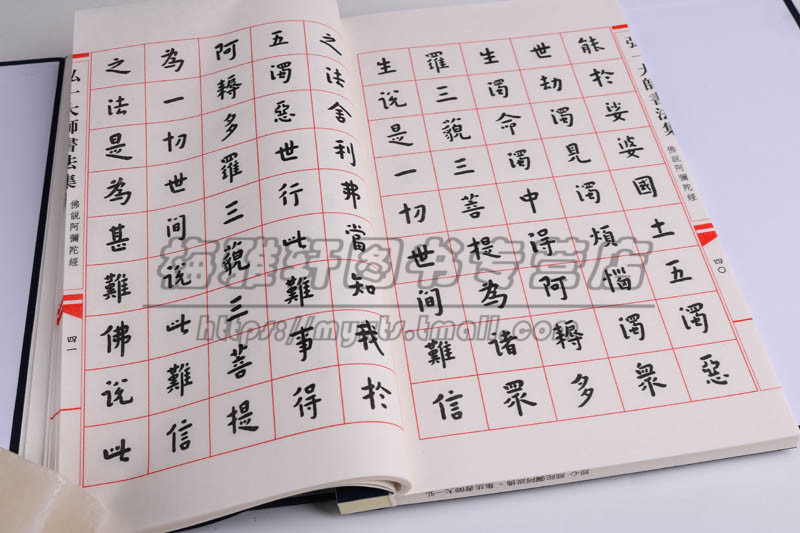 弘一大師書法集 佛說阿彌陀經 四〇
能於娑婆國土五濁惡
世劫濁見濁煩惱濁衆
生濁命濁中得阿耨多
羅三藐三菩提為諸眾
生說是一切世間難信
之法舍利弗當知我於
五濁惡世行此難事得
阿耨多羅三藐三菩提
為一切世間說此難信
之法是為甚難佛說此
弘一大師書法集 佛說阿彌陀經 四一
梅雅轩图书专营店
https://myxts.tmall.com
弘一大師書法集·佛說阿彌陀經 心經